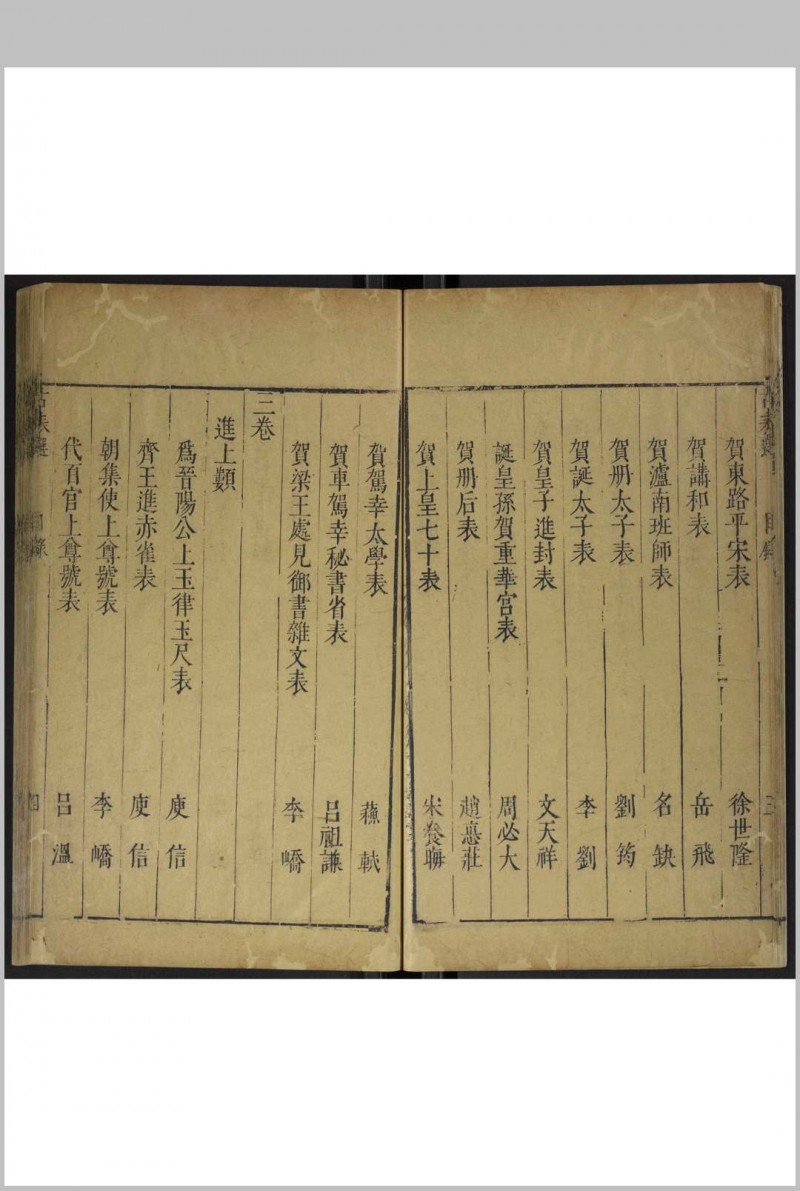 賀東路平宋表 徐世隆
賀講和表 岳飛
賀瀘南班師表 名缺
賀册太子表 劉筠
賀誕太子表 李劉
賀皇子進封表 文天祥
誕皇孫賀重華宮表 周必大
賀册后表
賀上皇七十表
賀駕幸太學表 蘇軾
賀車駕幸秘書省表 呂祖謙
賀梁王處見御書雜文表 李嶠
三卷
進上類
爲晉陽公上玉律玉尺表 庾信
齊王進赤雀表 庾信
朝集使上尊號表 李嶠
代百官上尊號表 呂溫
表選 目錄 四